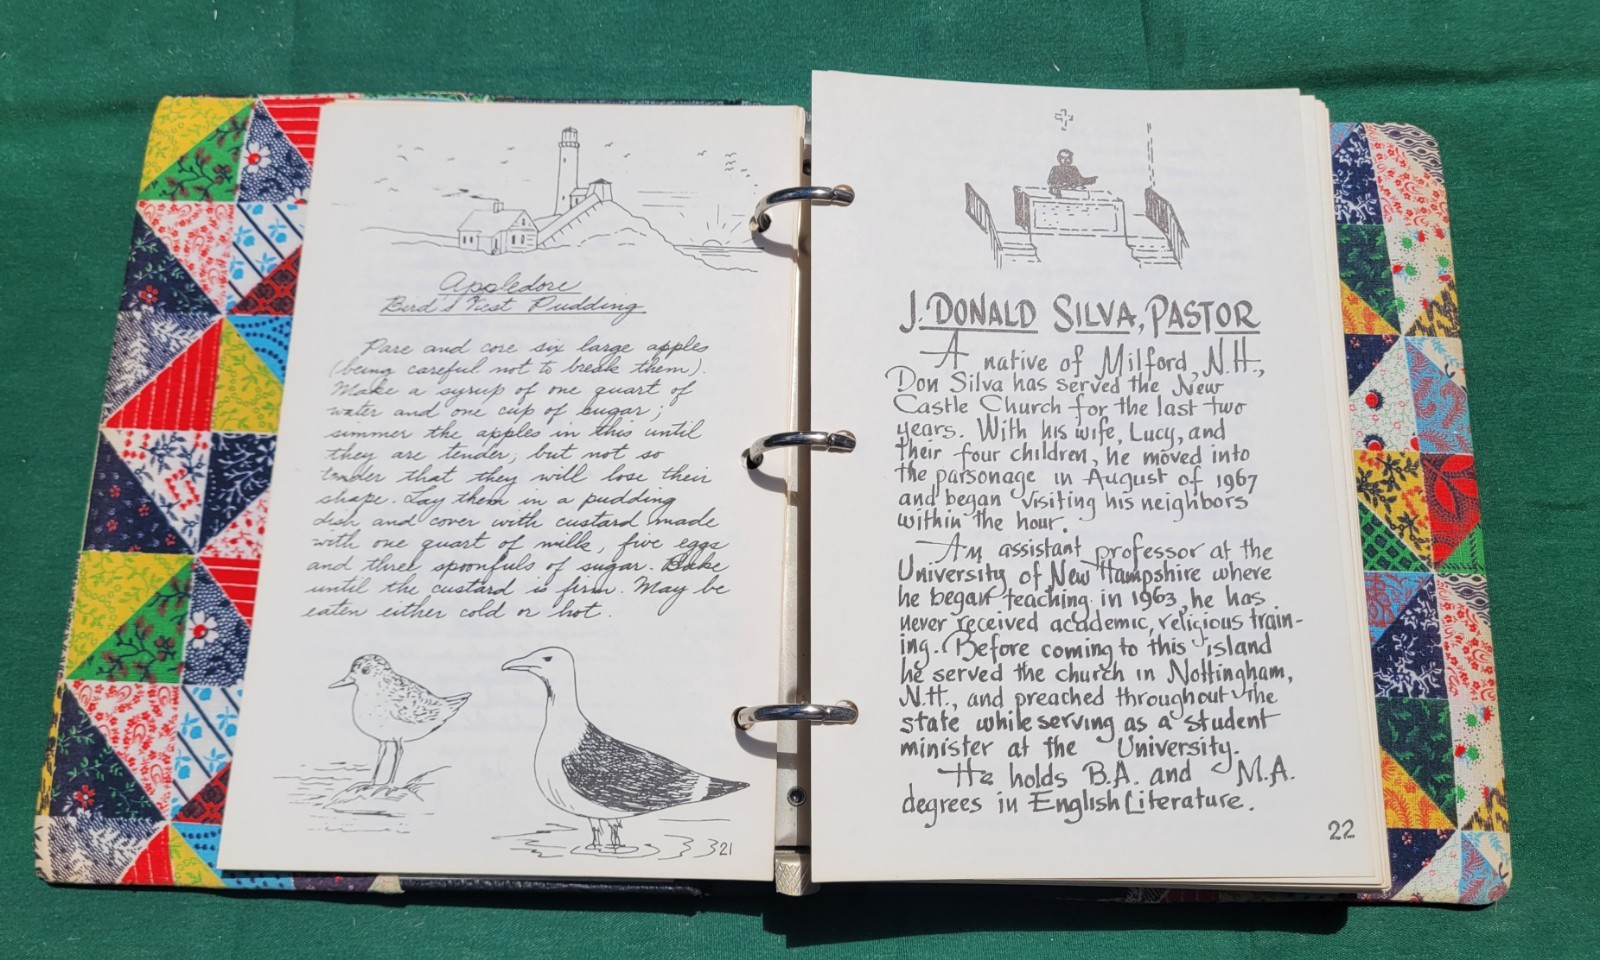 Appledore
Bird's Nest Pudding
Pare and core six large apples
(being careful not to break them).
Make a syrup of one quart of
water and one cup of sugar;
simmer the apples in this until
they are tender, but not so
tender that they will lose their
shape. Lay them in a pudding
dish and cover with custard made
with one quart of milk, five eggs
and three spoonfuls of sugar. Bake
until the custard is firm. May be
eaten either cold or hot.
21
J. DONALD SILVA, PASTOR
A native of Milford, N.H.,
Don Silva has served the New
Castle Church for the last two
years. With his wife, Lucy, and
their four children, he moved into
the parsonage in August of 1967
and began visiting his neighbors
within the hour.
An assistant professor at the
University of New Hampshire where
he began teaching in 1963, he has
never received academic, religious train-
ing. Before coming to this island
he served the church in Nottingham,
N.H., and preached throughout the
state while serving as a student
minister at the University.
He holds B.A. and M.A.
degrees in English Literature.
22